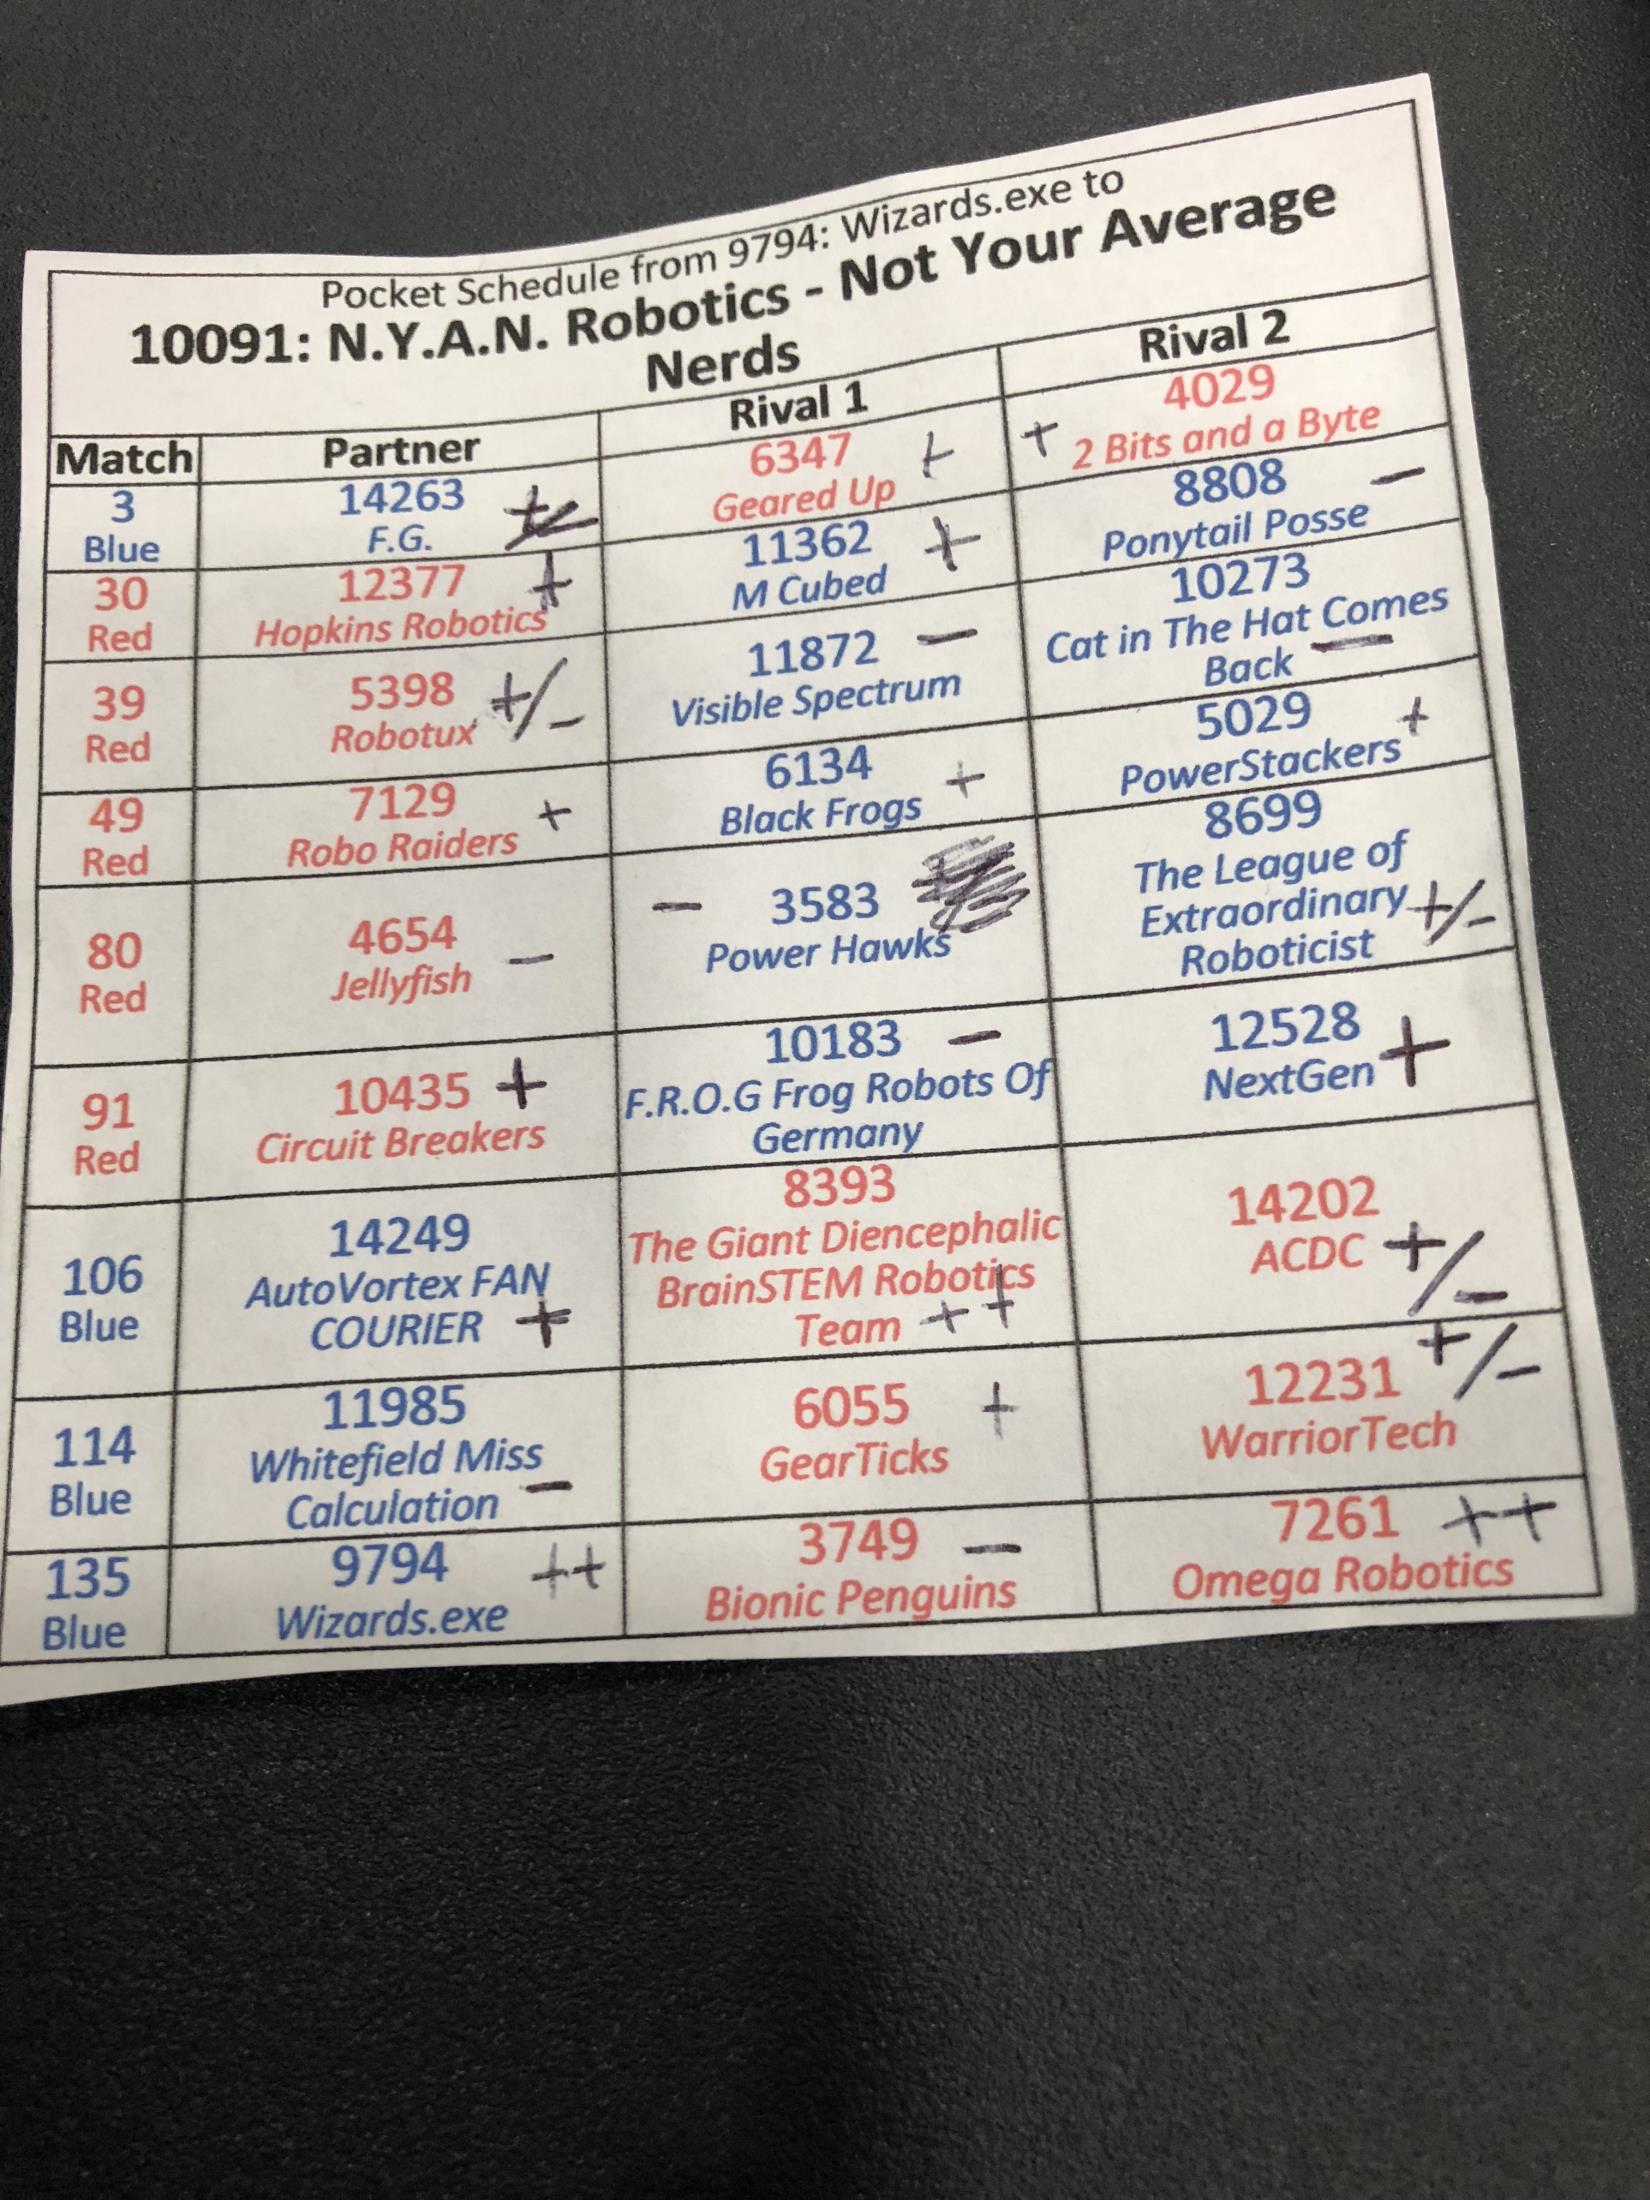 Pocket Schedule from 9794: Wizards.exe to
10091: N.Y.A.N. Robotics - Not Your Average
Nerds
Match Partner Rival 1 Rival 2
3
Blue
14263
F.G.
6347 +
Geared Up
+ 4029
2 Bits and a Byte
30
Red
12377 +
Hopkins Robotics
11362 +
M Cubed
8808 –
Ponytail Posse
39
Red
5398 +/-
Robotux
11872 –
Visible Spectrum
10273
Cat in The Hat Comes
Back –
49
Red
7129 +
Robo Raiders
6134 +
Black Frogs
5029 +
PowerStackers
80
Red
4654 –
Jellyfish
– 3583
Power Hawks
8699
The League of
Extraordinary +/-
Roboticist
91
Red
10435 +
Circuit Breakers
10183 –
F.R.O.G Frog Robots Of
Germany
12528 +
NextGen
106
Blue
14249
AutoVortex FAN
COURIER +
8393
The Giant Diencephalic
BrainSTEM Robotics
Team ++
14202
ACDC +/-
114
Blue
11985
Whitefield Miss
Calculation –
6055 +
GearTicks
12231 +/-
WarriorTech
135
Blue
9794 ++
Wizards.exe
3749 –
Bionic Penguins
7261 ++
Omega Robotics